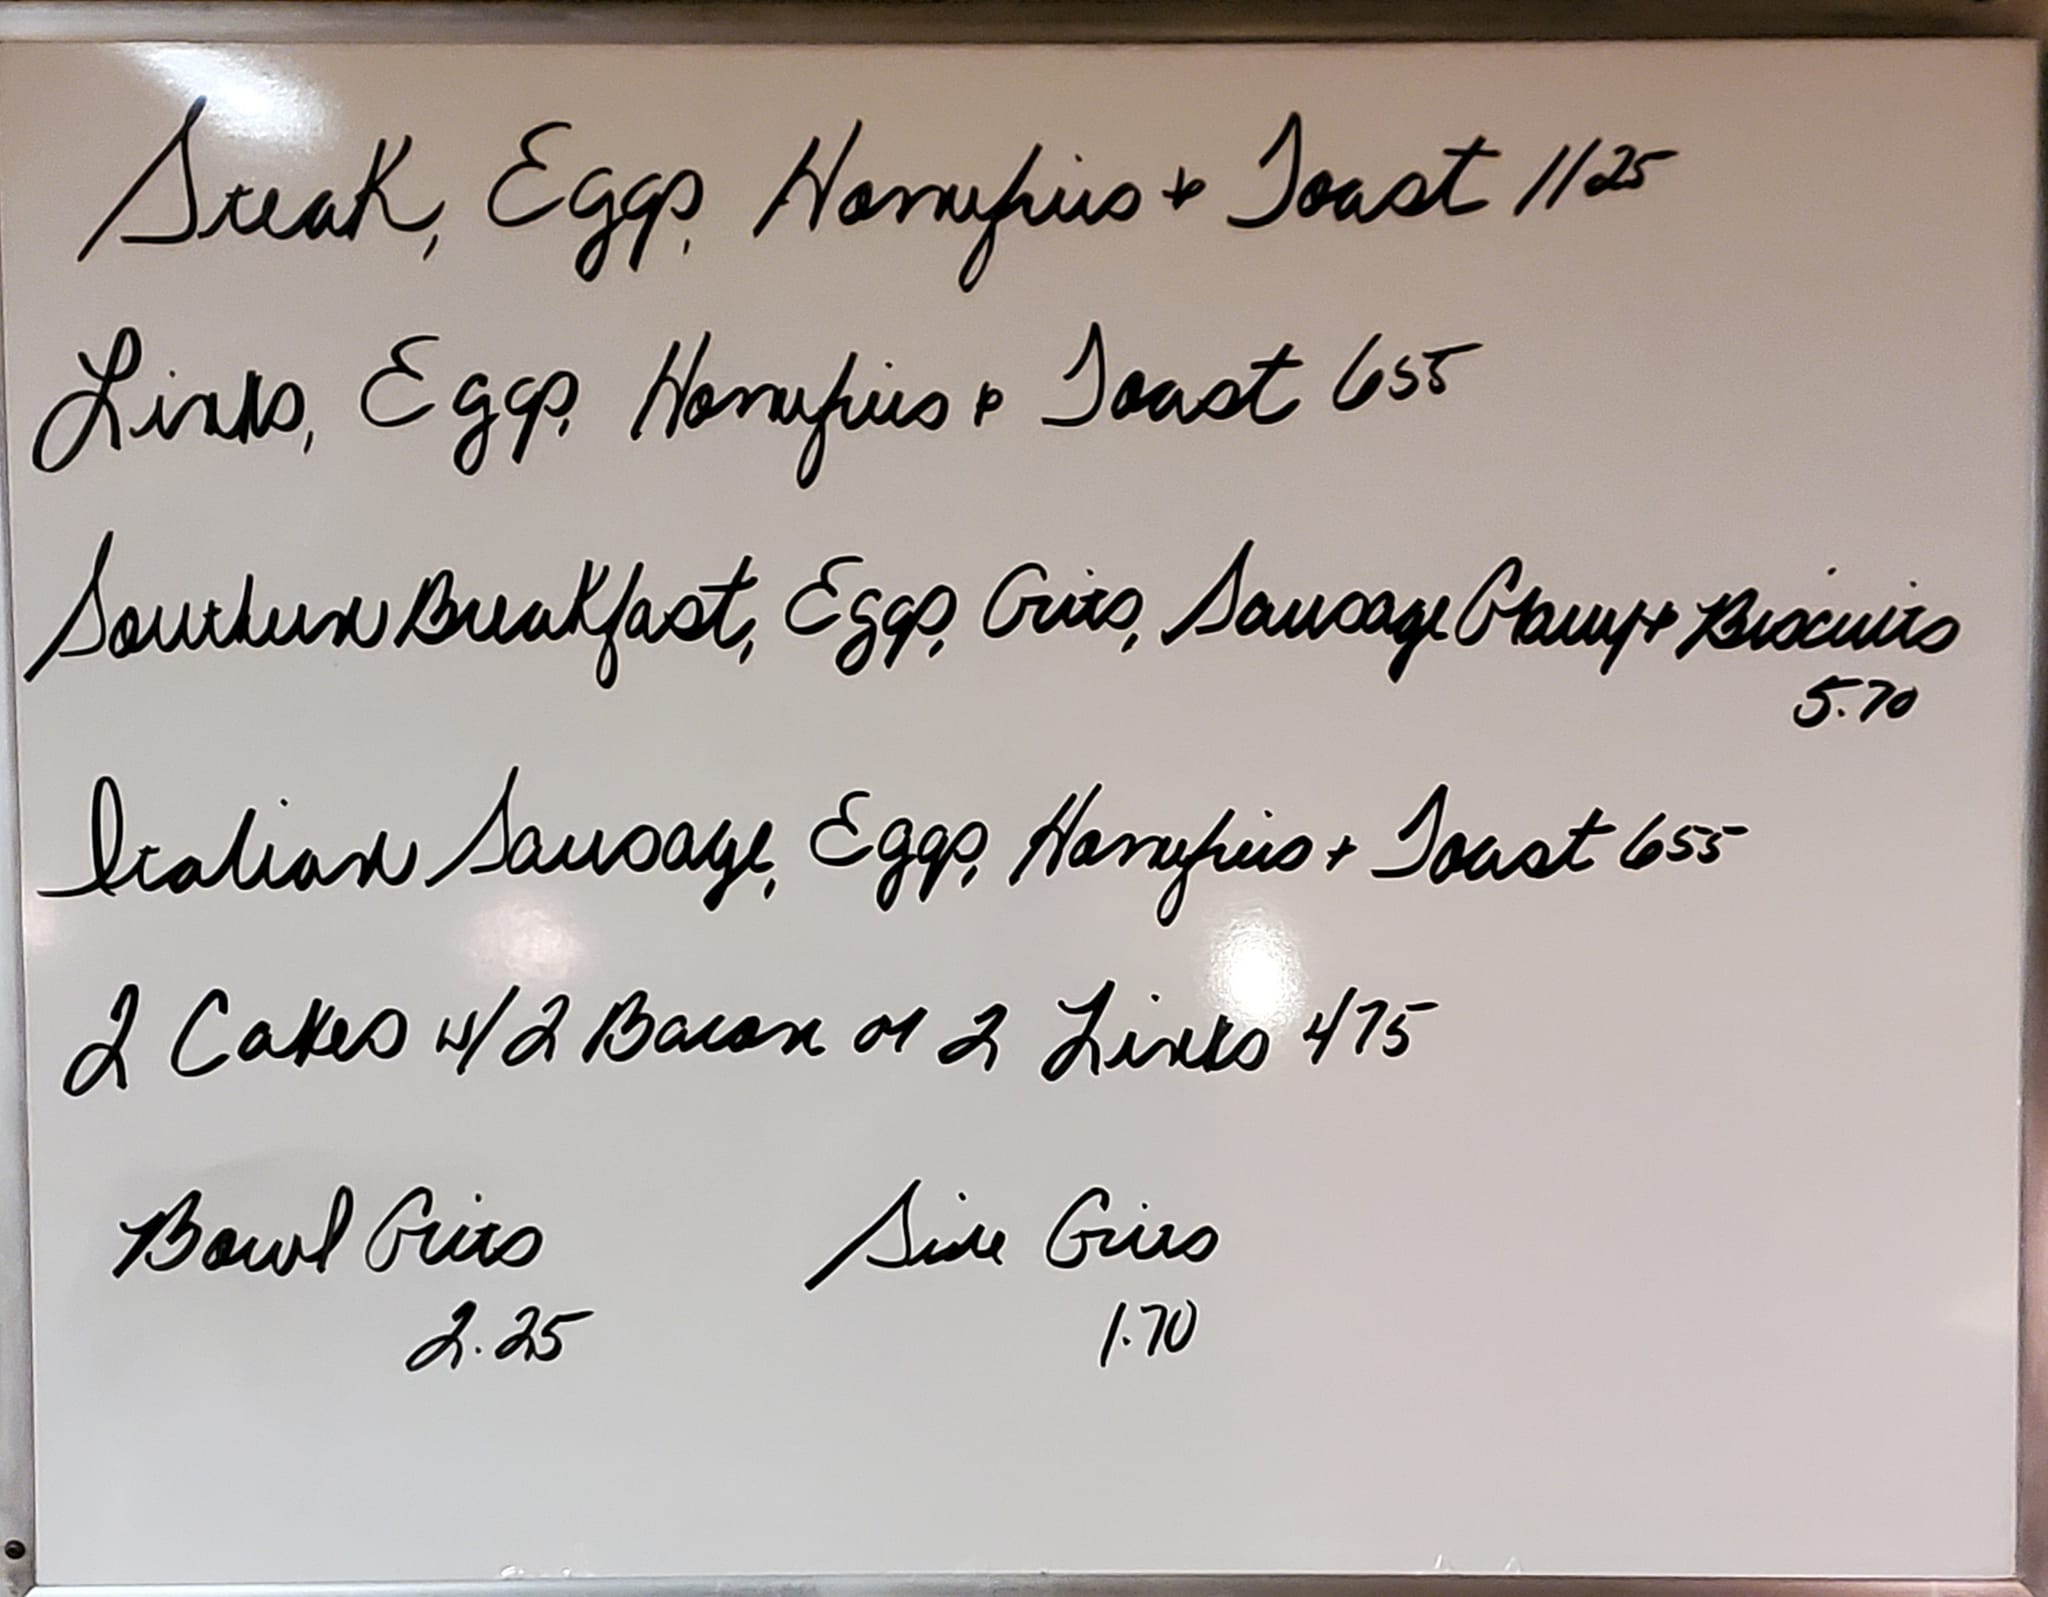 Steak, Eggs, Homefries + Toast 11 25
Links, Eggs, Homefries + Toast 6 55
Southern Breakfast, Eggs, Grits, Sausage Gravy + Biscuits
5.70
Italian Sausage, Eggs, Homefries + Toast 6 55
2 Cakes w/2 Bacon or 2 Links 4 75
Bowl Grits Side Grits
2.25 1.70